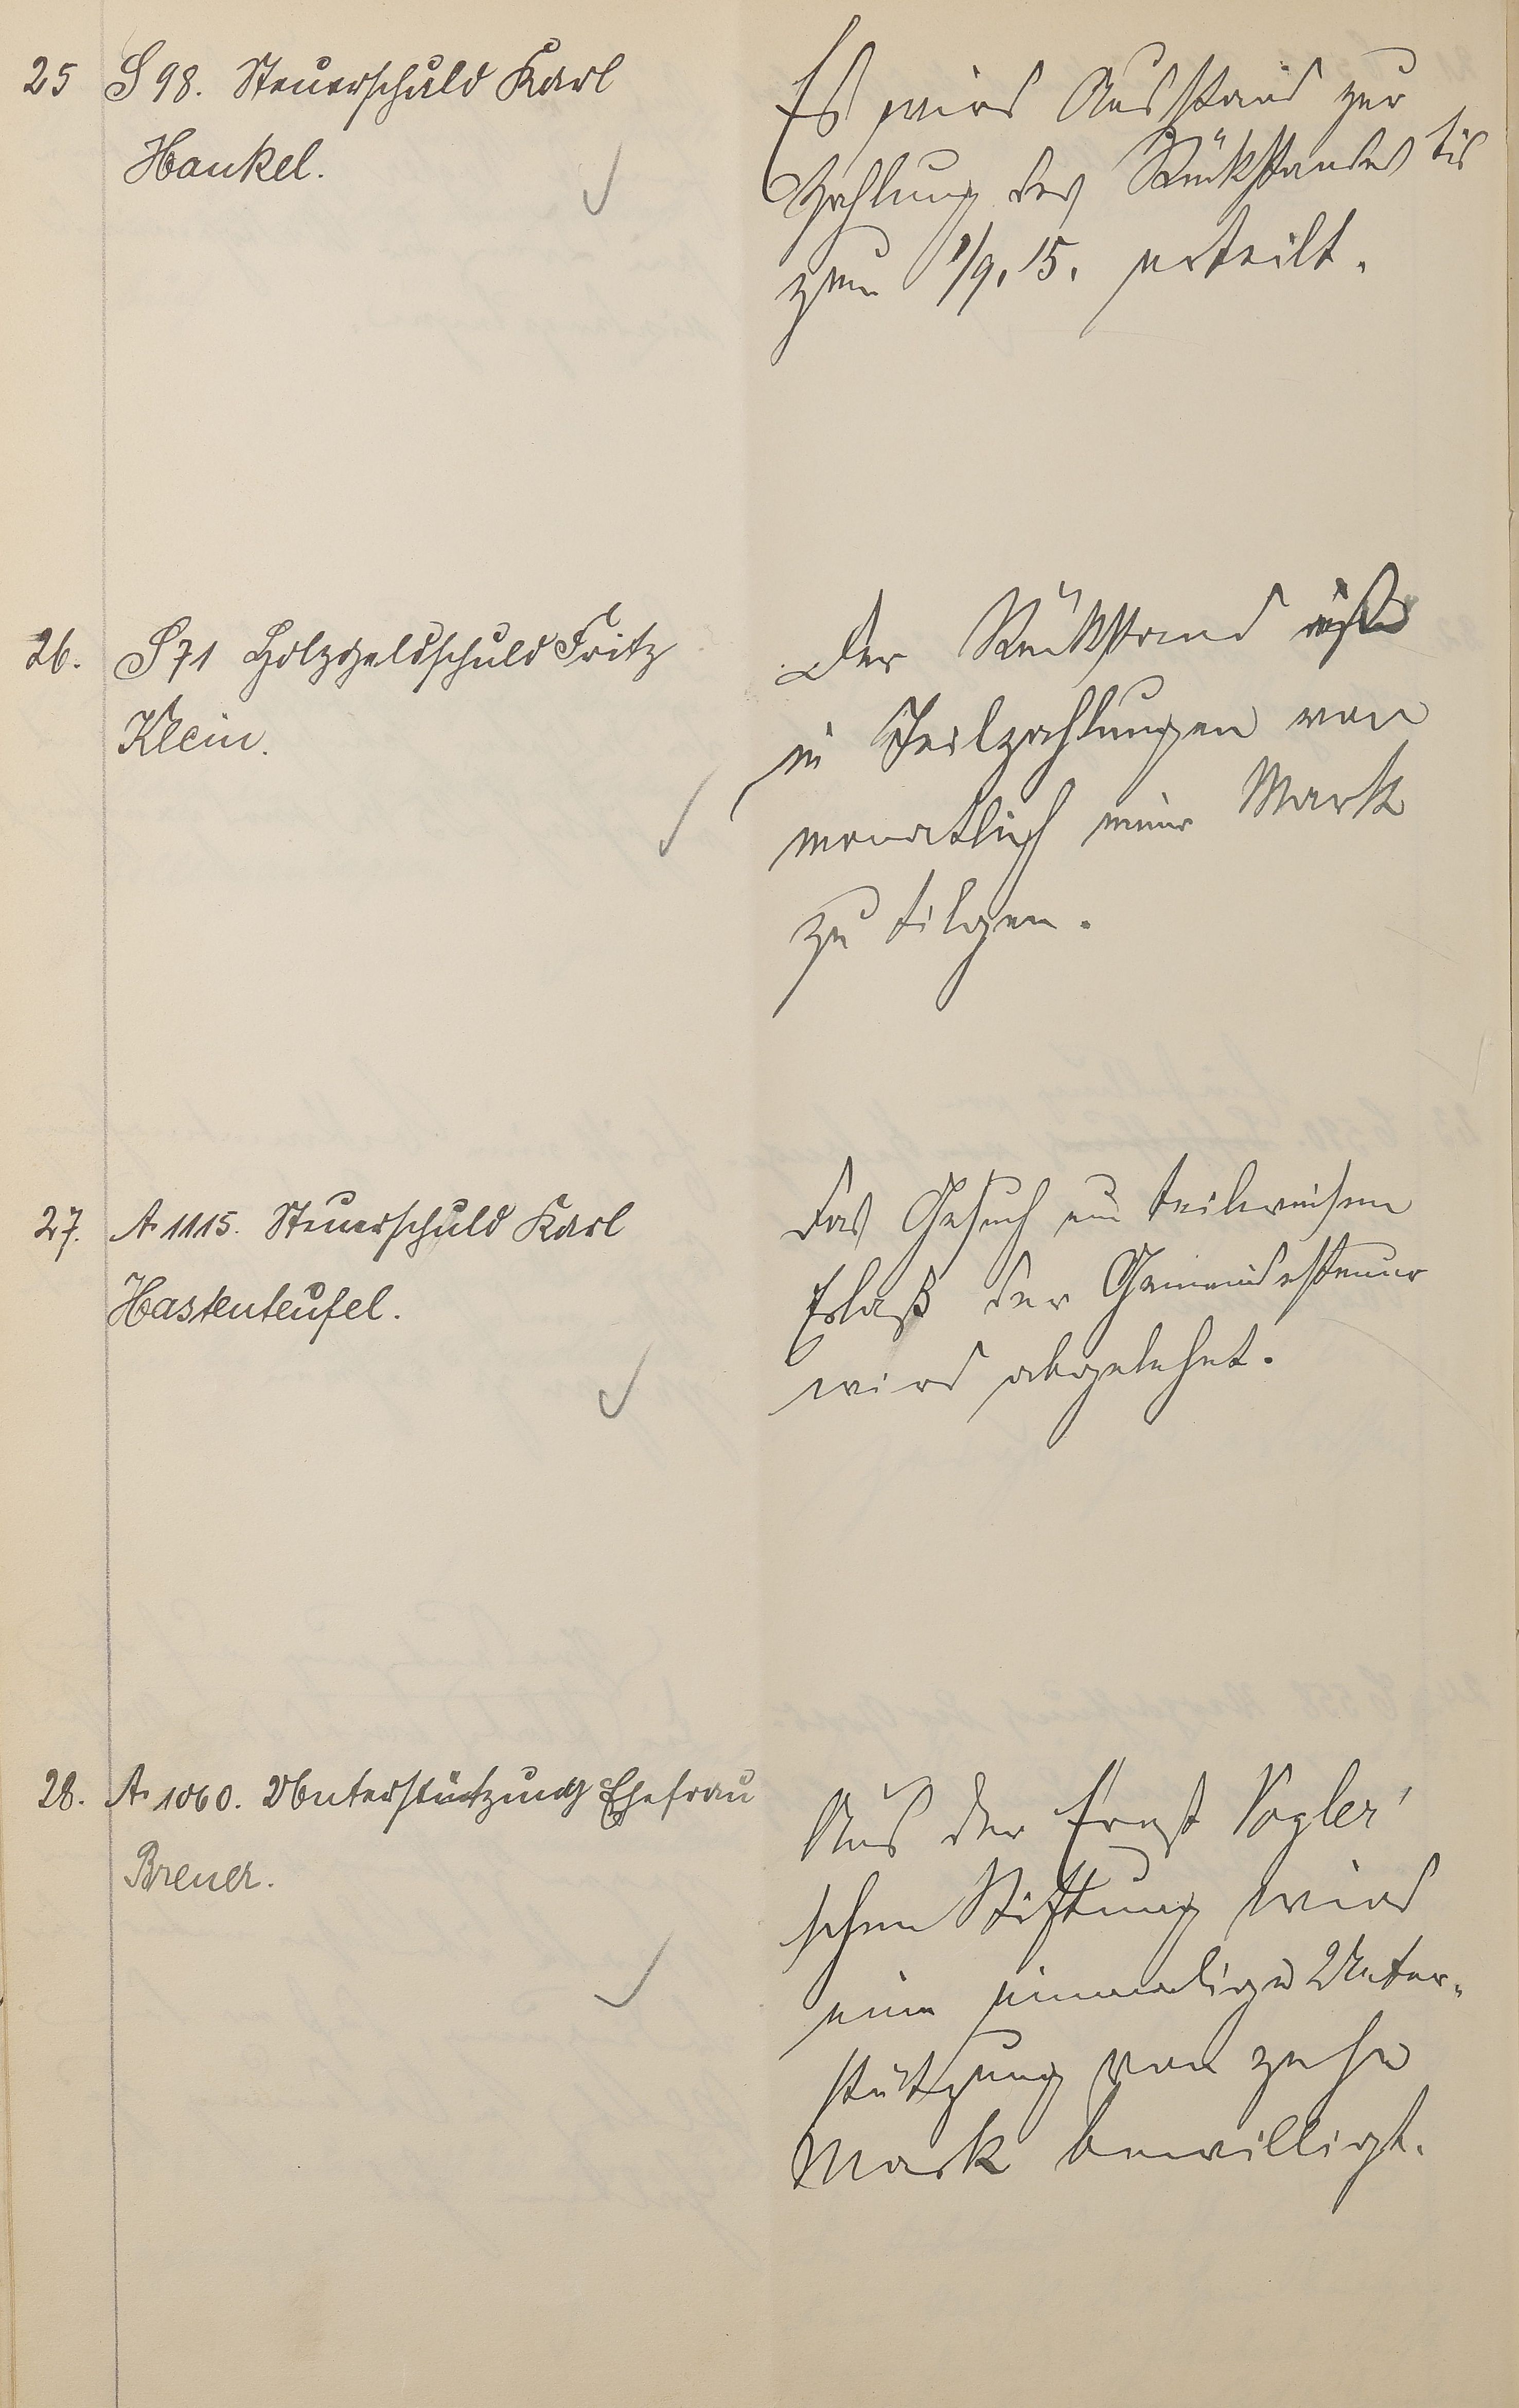 25 S 98. Steuerschuld Karl
Hankel.
Es wird Ausstand zur
Zahlung des Rückstandes bis
zum 1/9. 15. erteilt.
26. S 71 Holzgeldschuld Fritz
Klein.
Der Rückstand ist
in Teilzahlungen von
monatlich einer Mark
zu tilgen.
27. A. 1115. Steuerschuld Karl
Hastenteufel.
Das Gesuch um teilweisen
Erlaß der Gemeindesteuer
wird abgelehnt.
28. A. 1060. Unterstützung Ehefrau
Breuer.
Aus der Ernst Vogler'
schen Stiftung wird
eine einmalige Unter-
stützung von zehn
Mark bewilligt.